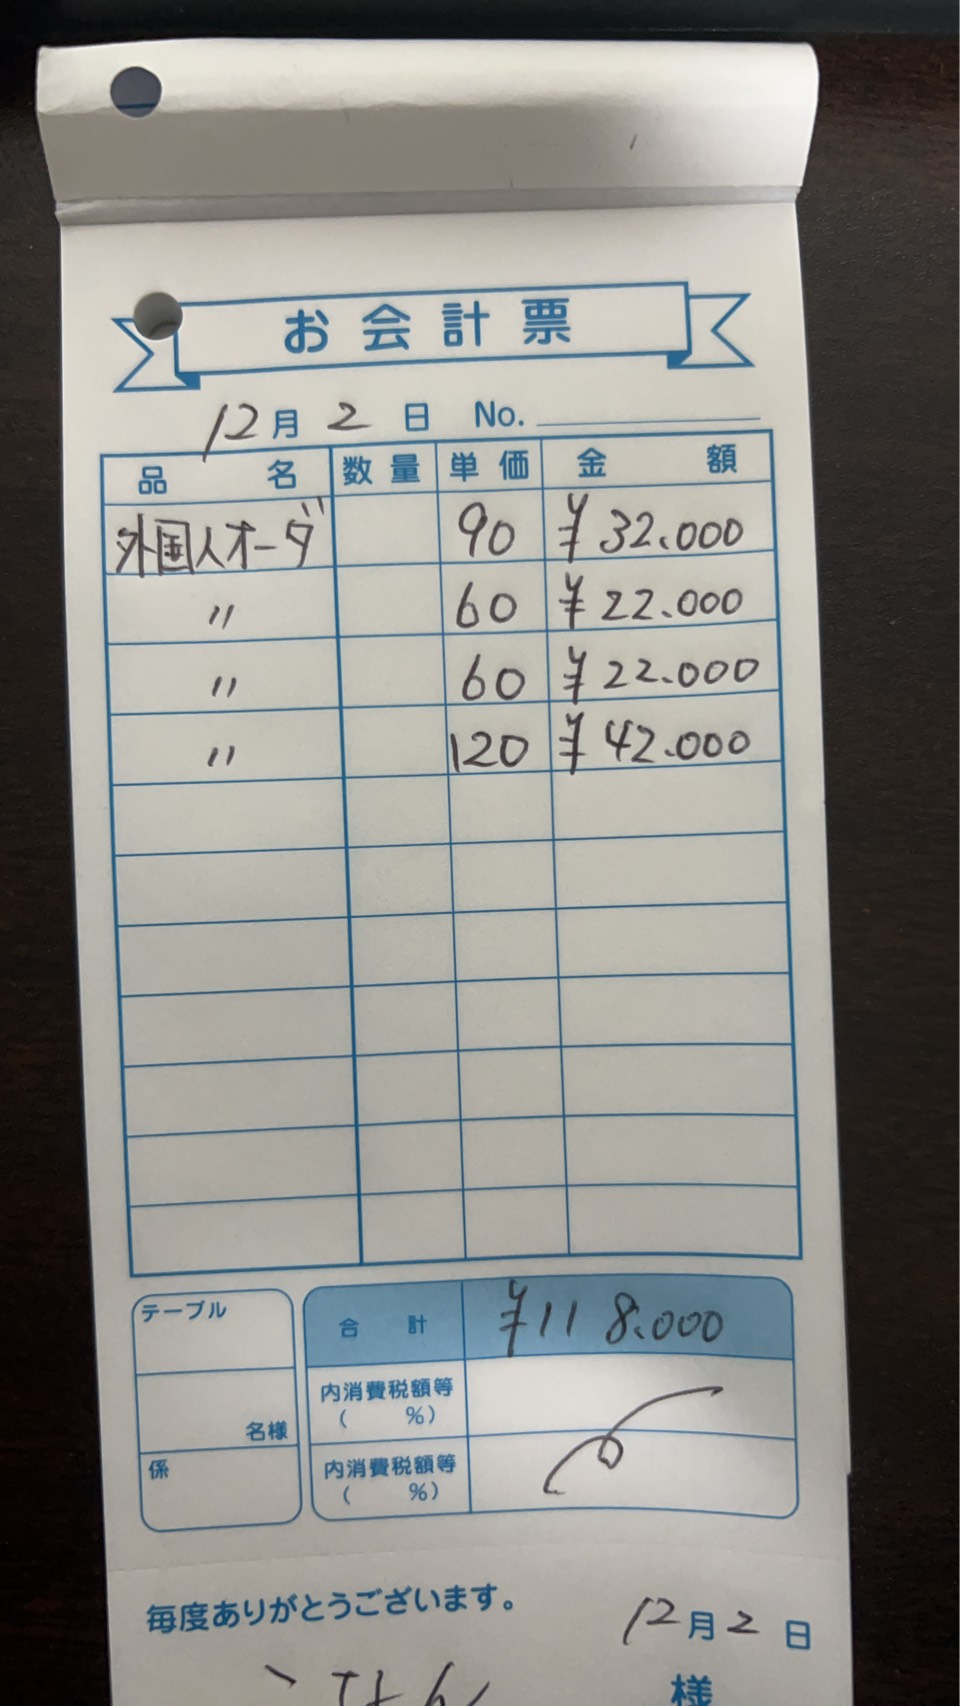 お会計票
12月 2 日 No.
品名 数量 単価 金額
外国人オーダ 90 ¥32.000
〃 60 ¥22.000
〃 60 ¥22.000
〃 120 ¥42.000
テーブル
名様
係
合計 ¥118.000
内消費税額等
( %)
内消費税額等
( %)
毎度ありがとうございます。
12月2日
様